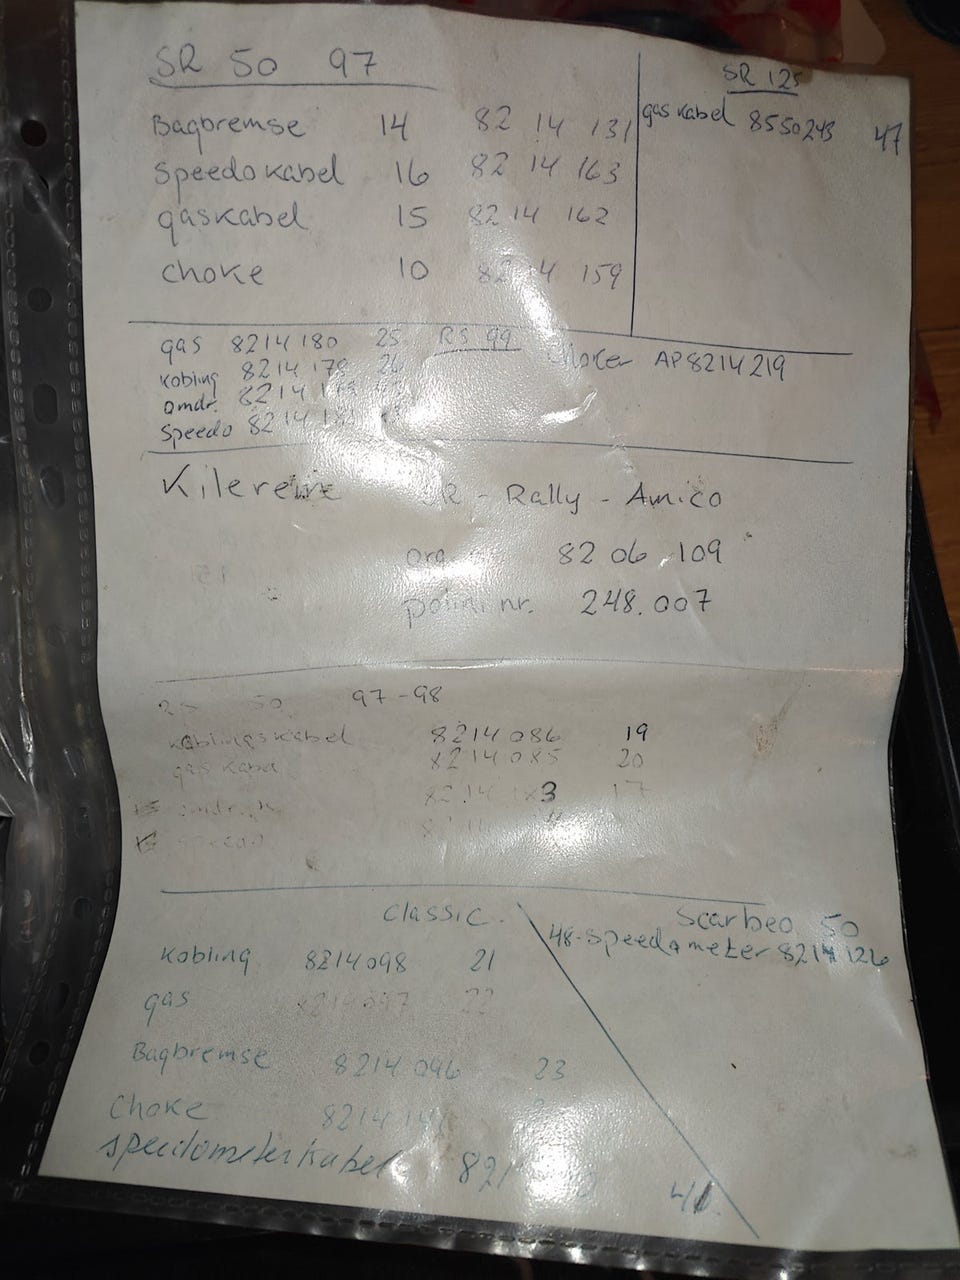 SR 50 97
Bagbremse 14 82 14 131
Speedo kabel 16 82 14 163
gaskabel 15 82 14 162
choke 10 82 14 159
SR 125
gas kabel 8550243 47
gas 8214 180 25 RS 99
AP8214219
kobling 8214 26
omdr. 8214
Speedo 8214
Kilereme R - Rally - Amico
org 82 06 109
polini nr. 248.007
50 97-98
koblingskabel 8214 086 19
gas kabel 8214 085 20
17
Classic.
Kobling 8214098 21
gas 22
Bagbremse 8214 096 23
Choke 8214
speedometerkabel 41
Scarbeo 50
48-speedometer 8214 126